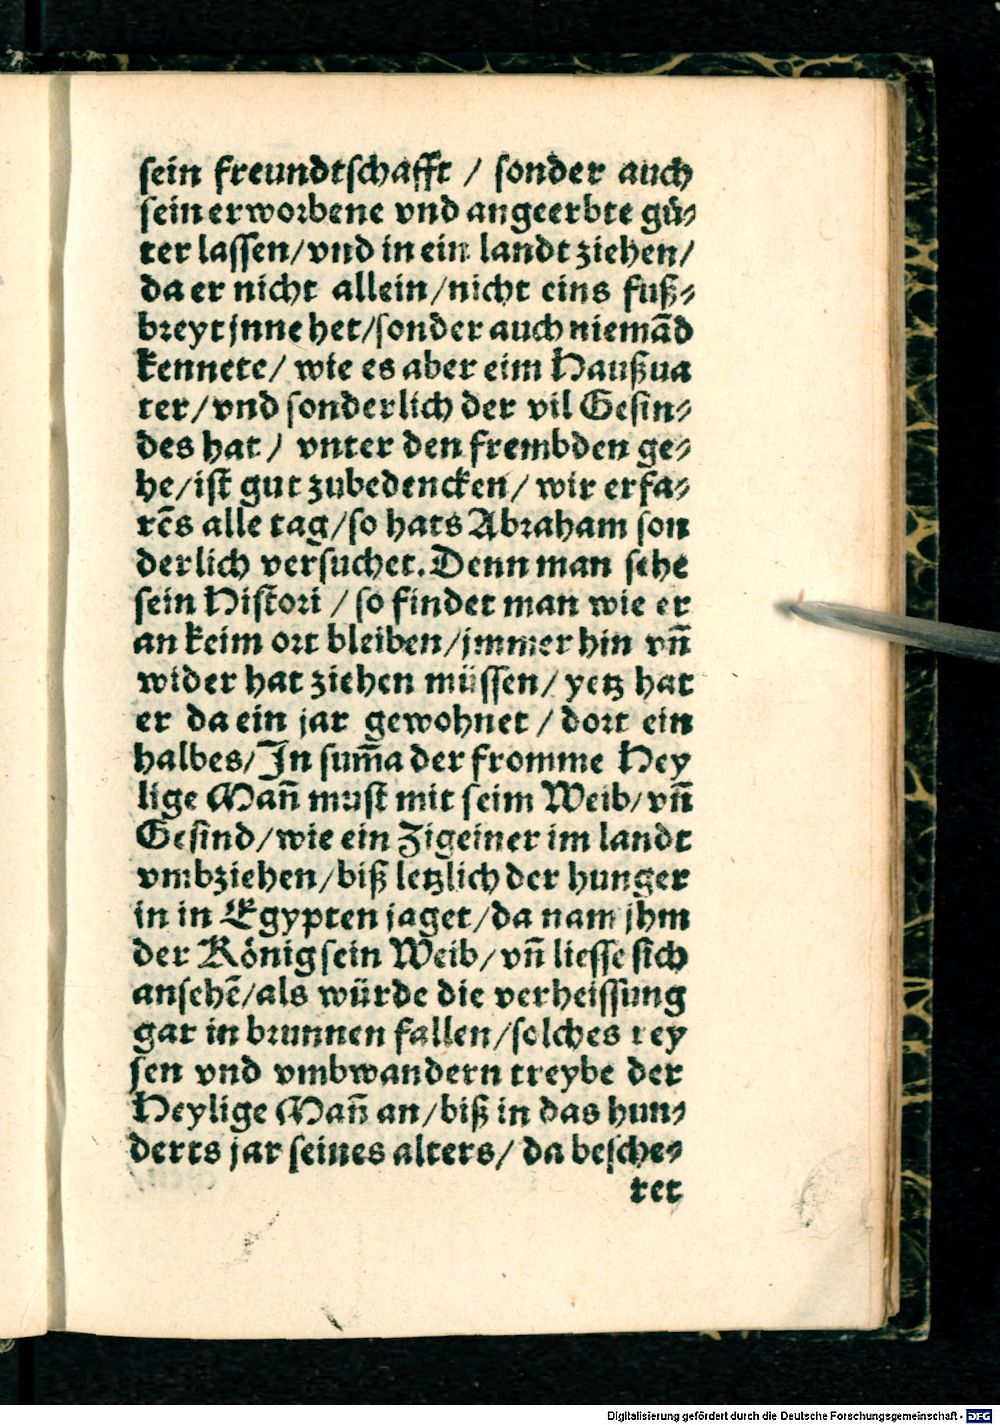 sein freundtschafft / sonder auch
sein erworbene vnd angeerbte gü⸗
ter lassen/vnd in ein landt ziehen/
da er nicht allein/nicht eins fuß⸗
breyt jnne het/sonder auch niemād
kennete/ wie es aber eim Haußua
ter/vnd sonderlich der vil Gesin⸗
des hat/ vnter den frembden ge⸗
he/ist gut zubedencken/ wir erfa⸗
rēs alle tag/so hats Abraham son
derlich versuchet. Denn man sehe
sein Histori / so findet man wie er
an keim ort bleiben/jmmer hin vn̄
wider hat ziehen müssen/ yetz hat
er da ein jar gewohnet / dort ein
halbes/ In sum̄a der fromme Hey
lige Man̄ must mit seim Weib/ vn̄
Gesind/wie ein Zigeiner im landt
vmbziehen/biß letzlich der hunger
in in Egypten jaget/da nam jhm
der König sein Weib/ vn̄ liesse sich
ansehē/als würde die verheissung
gar in brunnen fallen/solches rey
sen vnd vmbwandern treybe der
Heylige Man̄ an/biß in das hun⸗
derts jar seines alters/ da besche⸗
ret
Digitalisierung gefördert durch die Deutsche Forschungsgemeinschaft - DFG